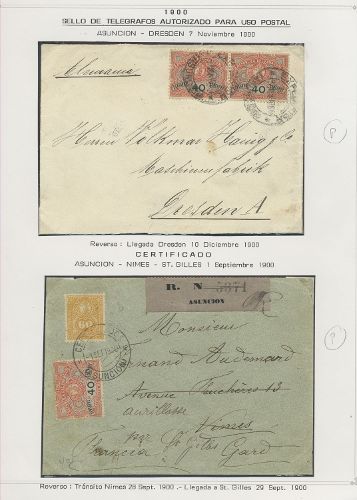 1900
SELLO DE TELEGRAFOS AUTORIZADO PARA USO POSTAL
ASUNCION - DRESDEN 7 Noviembre 1900
Alemania
40 40
Herren Volkmar Hänig & Co
Maschinenfabrik
Dresden A
P
Reverso : Llegada Dresden 10 Diciembre 1900
CERTIFICADO
ASUNCION - NIMES - ST. GILLES 1 Septiembre 1900
R. N 3371
ASUNCION
R
60
Monsieur
Fernand Audemard
Avenue Feuchères 13
Nimes
40
Francia St Gilles Gard
P
Reverso : Tránsito Nimes 28 Sept. 1900 .- Llegada a St. Gilles 29 Sept. 1900